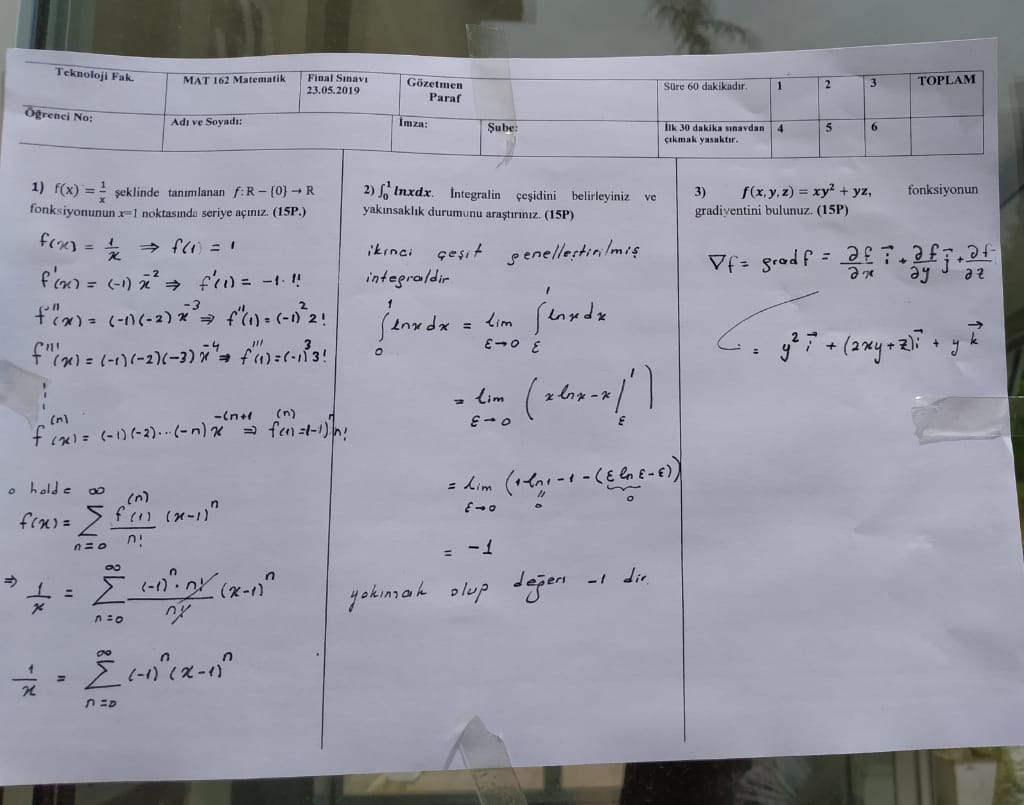 Teknoloji Fak.
MAT 162 Matematik
Final Sınavı
23.05.2019
Gözetmen
Paraf
Süre 60 dakikadır.
1
2
3
TOPLAM
Öğrenci No:
Adı ve Soyadı:
İmza:
Şube:
İlk 30 dakika sınavdan
çıkmak yasaktır.
4
5
6
1) f(x) = 1/x şeklinde tanımlanan f: R − {0} → R
fonksiyonunun x=1 noktasında seriye açınız. (15P.)
f(x) = 1/x ⇒ f(1) = 1
f'(x) = (-1) x^-2 ⇒ f'(1) = -1.1!
f''(x) = (-1)(-2) x^-3 ⇒ f''(1) = (-1)^2 2!
f'''(x) = (-1)(-2)(-3) x^-4 ⇒ f'''(1) = (-1)^3 3!
f^(n)(x) = (-1)(-2)...(-n) x^-(n+1 ⇒ f^(n)(1) = (-1)^n n!
o halde
f(x) = ∑_{n=0}^{∞} f^(n)(1)/n! (x-1)^n
⇒ 1/x = ∑_{n=0}^{∞} (-1)^n . n!/n! (x-1)^n
1/x = ∑_{n=0}^{∞} (-1)^n (x-1)^n
2) ∫_0^1 lnxdx. İntegralin çeşidini belirleyiniz ve
yakınsaklık durumunu araştırınız. (15P)
ikinci çeşit genelleştirilmiş
integraldir
∫_0^1 lnx dx = lim_{ε→0} ∫_ε^1 lnx dx
= lim_{ε→0} (x lnx - x |_ε^1)
= lim_{ε→0} (1.ln1 - 1 - (ε ln ε - ε))
" 0 0
= -1
yakınsak olup değeri -1 dir.
3) f(x, y, z) = xy² + yz, fonksiyonun
gradiyentini bulunuz. (15P)
∇f = grad f = ∂f/∂x i⃗ + ∂f/∂y j⃗ + ∂f/∂z
= y² i⃗ + (2xy+z) j⃗ + y k⃗